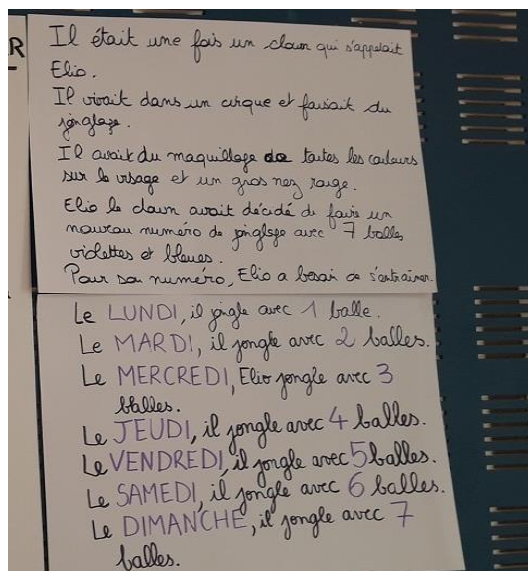 R
Il était une fois un clown qui s'appelait
Elio.
Il vivait dans un cirque et faisait du
jonglage.
Il avait du maquillage de toutes les couleurs
sur le visage et un gros nez rouge.
Elio le clown avait décidé de faire un
nouveau numéro de jonglage avec 7 balles
violettes et bleues.
Pour son numéro, Elio a besoin de s'entrainer.
Le LUNDI, il jongle avec 1 balle.
Le MARDI, il jongle avec 2 balles.
Le MERCREDI, Elio jongle avec 3
balles.
Le JEUDI, il jongle avec 4 balles.
Le VENDREDI, il jongle avec 5 balles.
Le SAMEDI, il jongle avec 6 balles.
Le DIMANCHE, il jongle avec 7
balles.